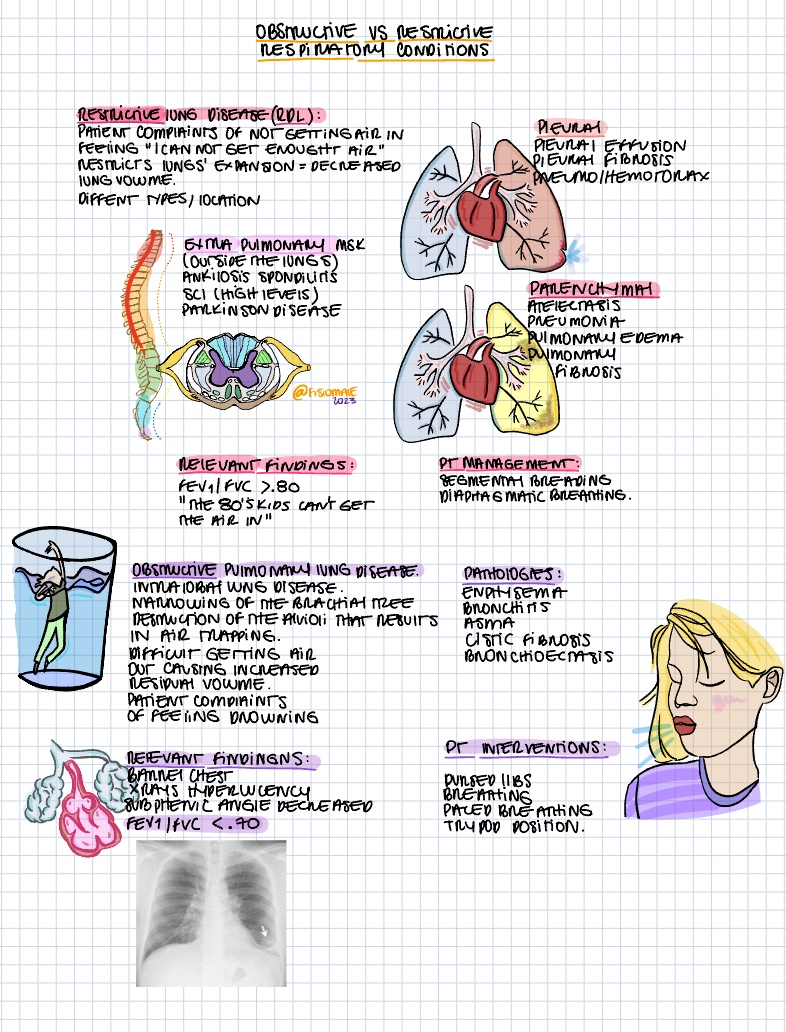 OBSTRUCTIVE VS RESTRICTIVE
RESPIRATORY CONDITIONS
RESTRICTIVE LUNG DISEASE (RDL):
PATIENT COMPLAINTS OF NOT GETTING AIR IN
FEELING "I CAN NOT GET ENOUGHT AIR"
RESTRICTS LUNGS' EXPANSION = DECREASED
LUNG VOLUME.
DIFFENT TYPES/LOCATION
PLEURAL
PLEURAL EFFUSION
PLEURAL FIBROSIS
PNEUMO/HEMOTORAX
EXTRA PULMONARY MSK
(OUTSIDE THE LUNGS)
ANKILOSIS SPONDILITIS
SCI (HIGH LEVELS)
PARKINSON DISEASE
@FISIOMALE
2023
PARENCHYMAL
ATELECTASIS
PNEUMONIA
PULMONARY EDEMA
PULMONARY
FIBROSIS
RELEVANT FINDINGS:
FEV1/FVC >.80
"THE 80'S KIDS CAN'T GET
THE AIR IN"
PT MANAGEMENT:
SEGMENTAL BREADING
DIAPHAGMATIC BREATHING.
OBSTRUCTIVE PULMONARY LUNG DISEASE.
INTRALOBAL LUNG DISEASE.
NARROWING OF THE BRACHIAL TREE
DESTRUCTION OF THE ALVIOLI THAT RESULTS
IN AIR TRAPPING.
DIFFICULT GETTING AIR
OUT CAUSING INCREASED
RESIDUAL VOLUME.
PATIENT COMPLAINTS
OF FEELING DROWNING
PATHOLOGIES:
ENPHYSEMA
BRONCHITIS
ASMA
CISTIC FIBROSIS
BRONCHIOECTASIS
RELEVANT FINDINGNS:
BARREL CHEST
XRAYS HYPERLUCENCY
SUBPHETVIC ANGLE DECREASED
FEV1/FVC <.70
PT INTERVENTIONS:
PURSED LIBS
BREATHING
PACED BREATHING
TRYPOD POSITION.